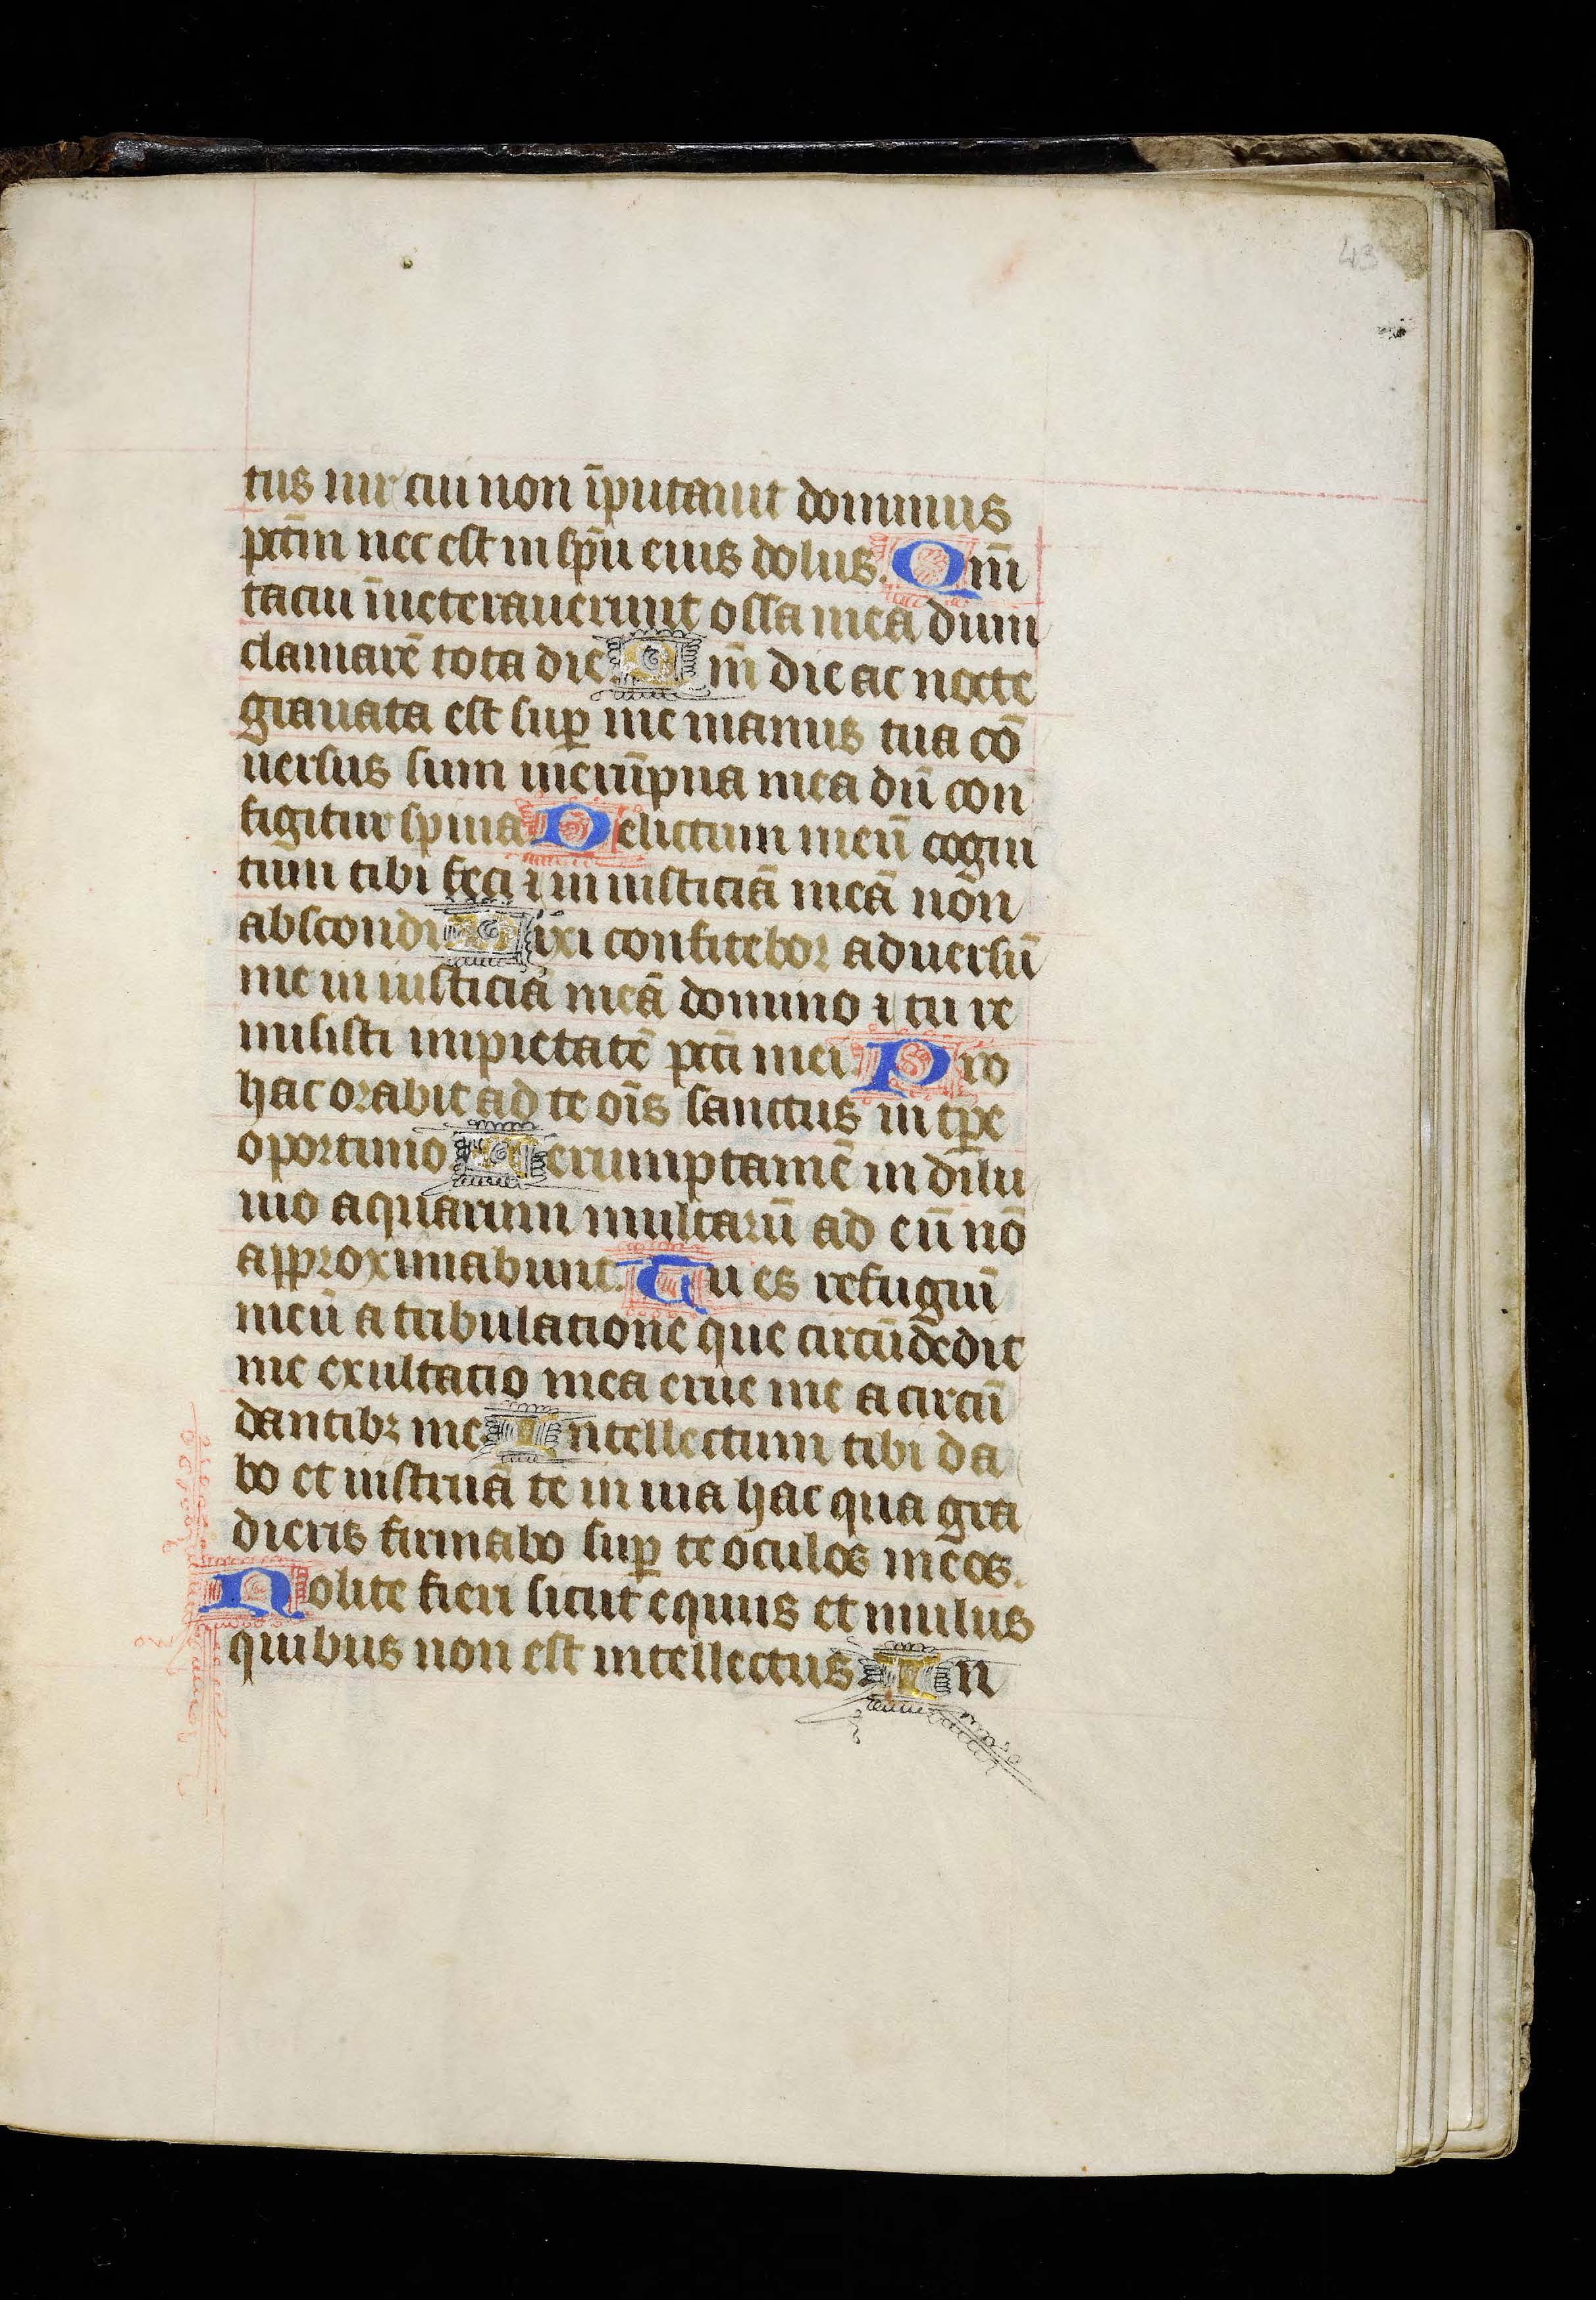 43
tus uir cui non īputauit dominus
pctm̄ nec est in sp̄u eius dolus. Qm̄
tacui īueterauerunt ossa mea dum
clamarē tota die. Qm̄ die ac nocte
grauata est suꝑ me manus tua cō
uersus sum in erūpna mea dū con
figitur spina. Delictum meū cogni
tum tibi feci ⁊ in iusticiā meā non
abscondi. Dixi confitebor aduersū
me in iusticiā meā domino ⁊ tu re
misisti impietatē pcti mei. Pro
hac orabit ad te oīs sanctus in tꝑe
oportuno. Uerumptamē in dilu
uio aquarum multarū ad eū nō
approximabunt. Tu es refugiū
meū a tribulatione que circūdedit
me exultatio mea erue me a circū
dantibꝫ me. Intellectum tibi da
bo et instruā te in uia hac qua gra
dieris firmabo suꝑ te oculos meos.
Nolite fieri sicut equus et mulus
quibus non est intellectus. In